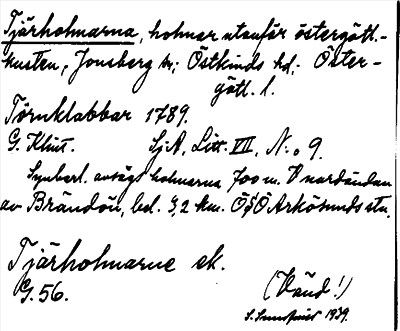 Tjärholmarna, holmar utanför östergötl.-
kusten, Jonsberg sn; Östkinds hd; Öster-
götl. l.
Törnklabbar 1789.
G. Klint. SjA, Litt. VII, N:o 9.
Synberl. avsågs holmarna 700 m. V nordändan
av Brändön, bel. 3,2 km. ÖSÖ Arkösunds stn.
Tjärholmarne ek.
G. 56. (Vänd!)
S. 1939.